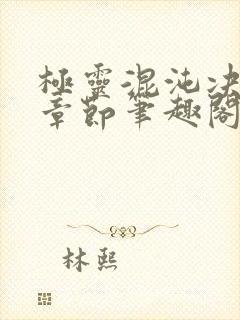 極靈混沌决
章節筆趣閣
林熙